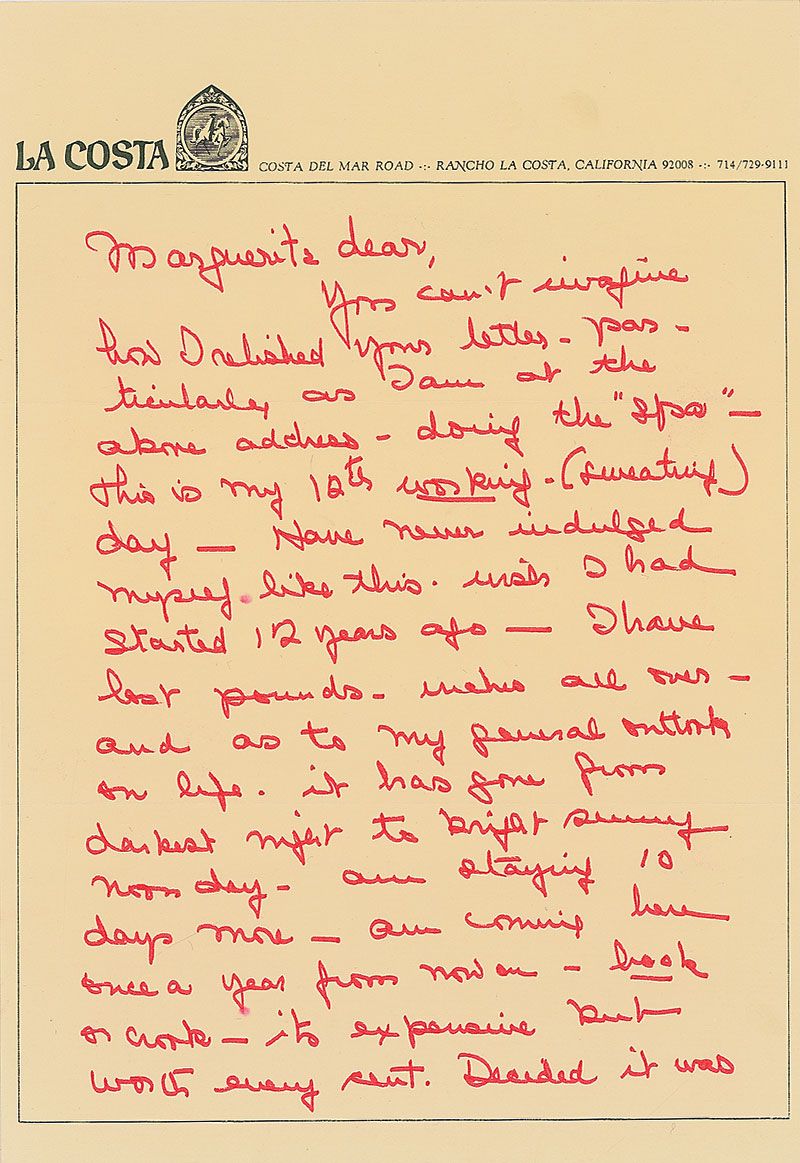 LA COSTA
COSTA DEL MAR ROAD -:- RANCHO LA COSTA, CALIFORNIA 92008 -:- 714/729-9111
Marguerite dear,
You can't imagine
how I relished your letter - par -
ticularly as I am at the
above address - doing the "Spa" -
this is my 12th working - (sweating)
day - Have never indulged
myself like this. wish I had
started 12 years ago - I have
lost pounds - inches all over -
and as to my general outlook
on life. it has gone from
darkest night to bright sunny
noon day - am staying 10
days more - am coming here
once a year from now on - hook
or crook - its expensive but
worth every cent. Decided it was